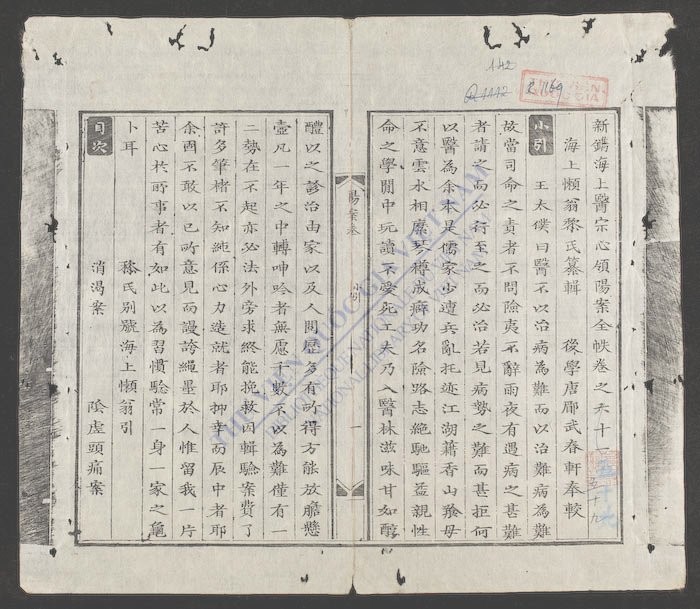 新鐫海上醫宗心領陽案全帙卷之六十一
海上懶翁黎氏纂輯 後學唐郿武春軒奉較
小引
王太僕曰醫不以治病為難而以治難病為難
故當司命之責者不問險夷不辭雨夜有遇病之甚難
者請之而必行至之而必治若見病勢之難而甚拒何
以醫為余本是儒家少遭兵亂托迹江湖藉香山
不意雲水相縻琴樽成癖功名險路志絶馳驅益親性
命之學閒中玩讀不愛死工夫乃入醫林滋味甘如醇
陽案卷 小引 一
醴以之診治由家以及人間歷多有所得方能放膽懸
壺凡一年之中轉呻吟者無慮千數不以為難僅有一
二勢在不起亦必法外旁求終能挽救因輯驗案費了
許多筆楮不知純係心力造就者耶抑幸而辰中者耶
余固不敢以已所意見而謾誇繩墨於人惟留我一片
苦心於所事者有如此以為習慣驗常一身一家之龜
卜耳
務氏别號海上懶翁引
目次
消渴案 陰虛頭痛案
142
R.1169
五十九